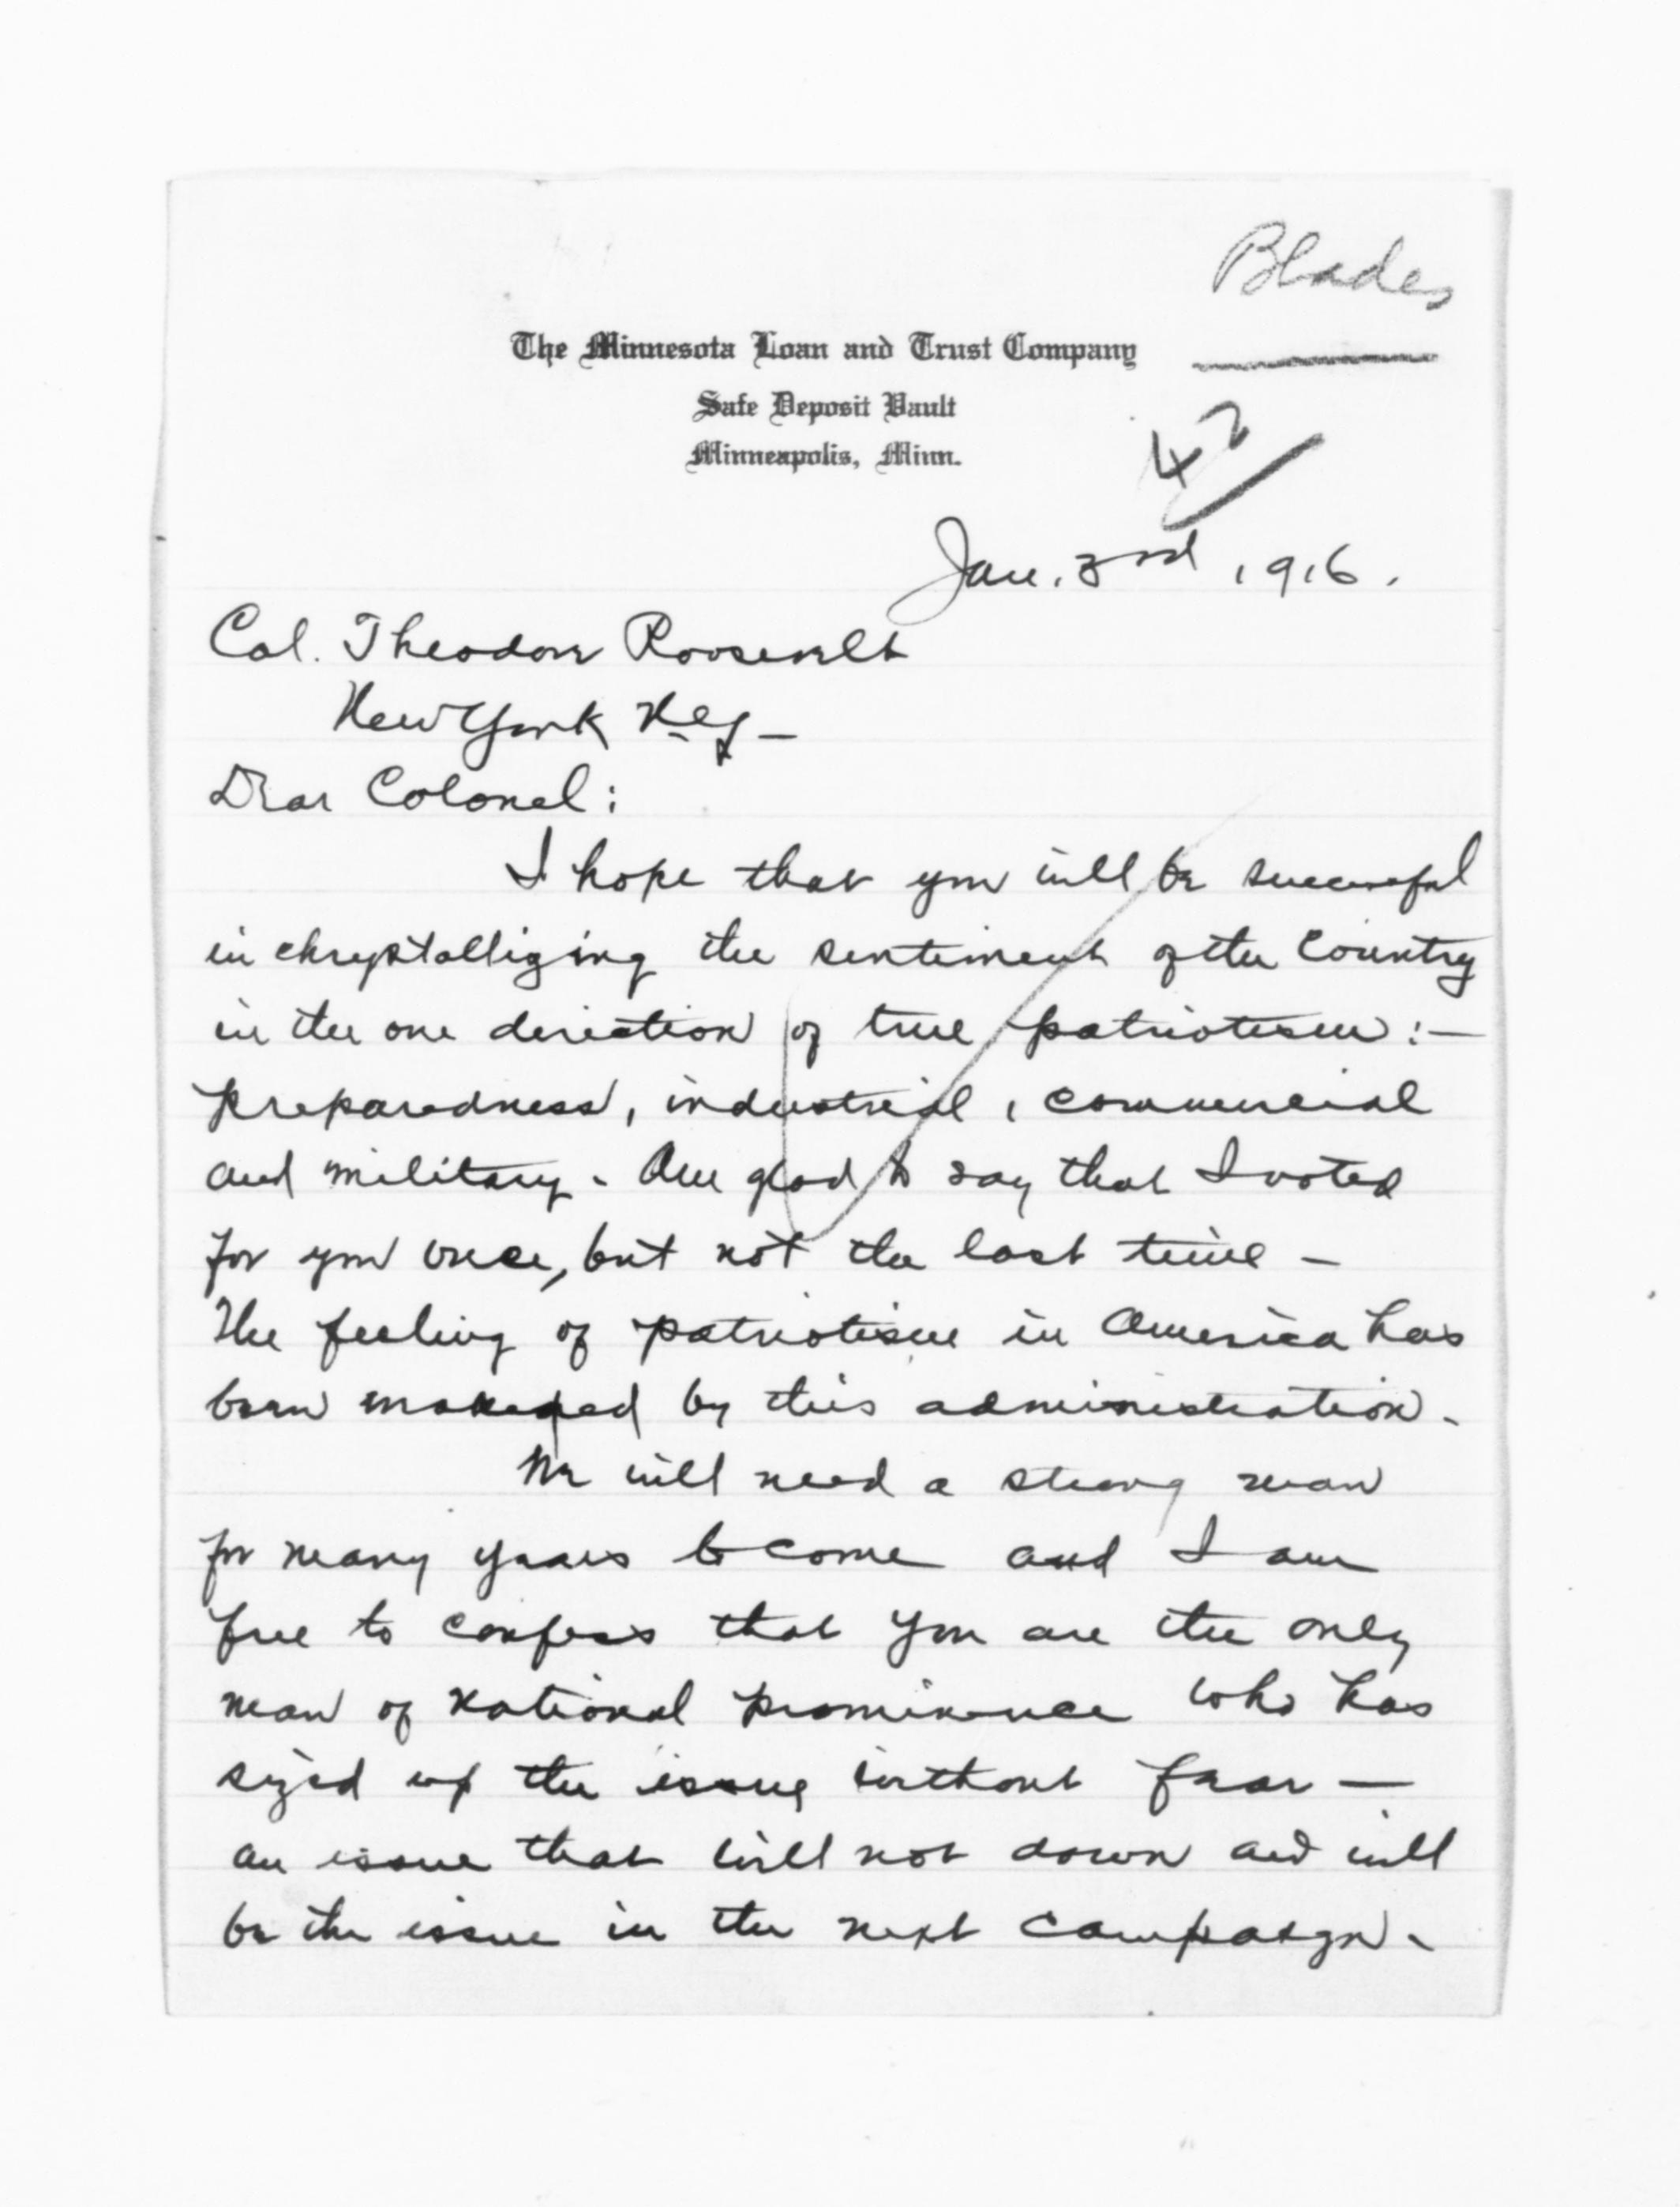 Blades
The Minnesota Loan and Trust Company
Safe Deposit Vault
Minneapolis, Minn.
42
Jan. 3rd, 1916.
Col. Theodore Roosevelt
New York N.Y. —
Dear Colonel:
I hope that you will be successful
in chrystallizing the sentiment of the Country
in the one direction of true patriotism :—
preparedness, industrial, commercial
and military - Am glad to say that I voted
for you once, but not the last time —
The feeling of patriotism in America has
been by this administration -
We will need a strong man
for many years to come and I am
free to confess that you are the only
man of national prominence who has
sized up the issue without fear —
an issue that will not down and will
be the issue in the next campaign -